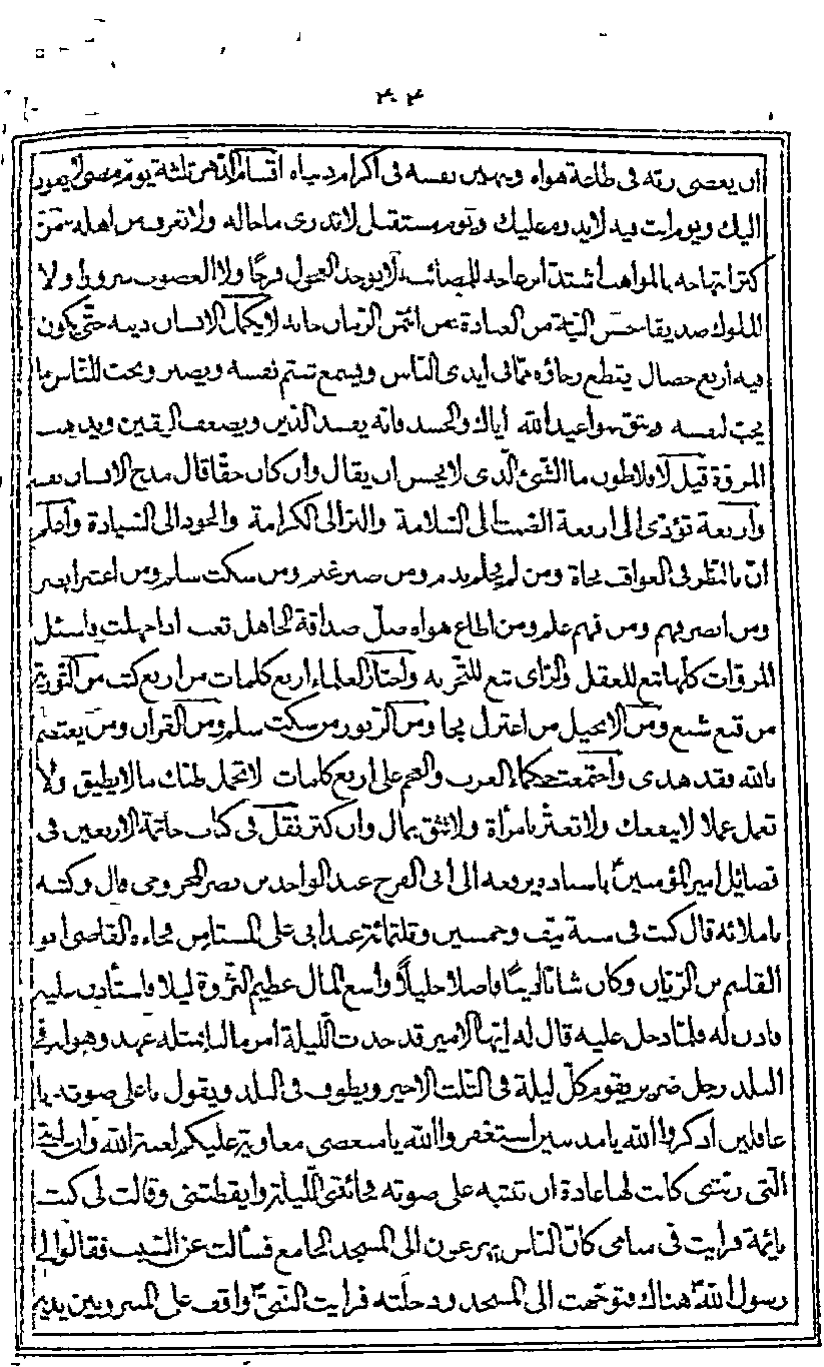 ۴۰۴
ان يعصى ربه فى طاعة هواه ويهين نفسه فى اكرام دنياه اقسام الدهر ثلثة يوم مضى لا يعود
اليك ويوم انت فيه لا يدوم عليك ويوم مستقبل لا تدرى ما حاله ولا تعرف من اهله من
كثر ابتهاجه بالمواهب اشتد انزعاجه للمصائب لا يوجد العجول فرحًا ولا الغضوب سرورا ولا
الملوك صديقا حسن النية من العبادة من ائتمن الزمان خانه لا يكمل الانسان دينه حتى يكون
فيه اربع خصال يقطع رجاؤه ممّا فى ايدى الناس ويسمع شتم نفسه ويصبر ويحب للناس ما
يحب لنفسه ويثق بمواعيد الله اياك والحسد فانه يفسد الدّين ويضعف اليقين ويذهب
المروة قيل لافلاطون ما الشئ الّذى لا يحسن ان يقال وان كان حقّا قال مدح الانسان نفسه
واربعة تؤدّى الى اربعة الصّمت الى السّلامة والبرّ الى الكرامة والجود الى السّيادة واعلم
انّ بالنّظر فى العواقب نجاة ومن لم يحلم يندم ومن صبر غنم ومن سكت سلم ومن اعتبر ابصر
ومن ابصر فهم ومن فهم علم ومن اطاع هواه ضلّ صداقة الجاهل تعب اذا جهلت فاسئل
المروّات كلّها تبع للعقل والرّاى تبع للتّجربة واختار العلماء اربع كلمات من اربع كتب من التّورية
من قنع شبع ومن الانجيل من اعتزل نجا ومن الزّبور من سكت سلم ومن القران ومن يعتصم
بالله فقد هدى واجتمعت حكماء العرب والعجم على اربع كلمات لا تحمل ظنك ما لا يطيق ولا
تعمل عملا لا ينفعك ولا تغتر بامرأة ولا تثق بمال وان كثر نقل فى كتاب خاتمة الاربعين فى
فضائل امير المؤمنين باسناده يرفعه الى ابى الفرج عبد الواحد بن نصر المخزومى قال وكتبه
باملائه قال كنت فى سنة نيّف وخمسين وثلثمائة عند ابى على المستامن فجاءه القاضى ابو
القاسم بن الزيّان وكان شابّا اديبًا فاضلا جليلاً واسع المال عظيم الثّروة ليلا فاستأذن عليه
فاذن له فلمّا دخل عليه قال له ايّها الامير قد حدث اللّيلة امر ما لنا بمثله عهد وهو ان فى
البلد رجل ضرير يقوم كلّ ليلة فى الثّلث الاخير ويطوف فى البلد ويقول باعلى صوته يا
غافلين اذكروا الله يا مذنبين استغفروا الله يا مبغضى معاوية عليكم لعنة الله وان
الّتى ربتنى كانت لها عادة ان تنتبه على صوته فجائتنى اللّيلة وايقظتنى وقالت لى كنت
نائمة فرايت فى منامى كانّ النّاس يهرعون الى المسجد الجامع فسألت عن السّبب فقالوا لى
رسول الله هناك فتوجّهت الى المسجد ودخلته فرايت النّبى واقف على المنبر وبين يديه